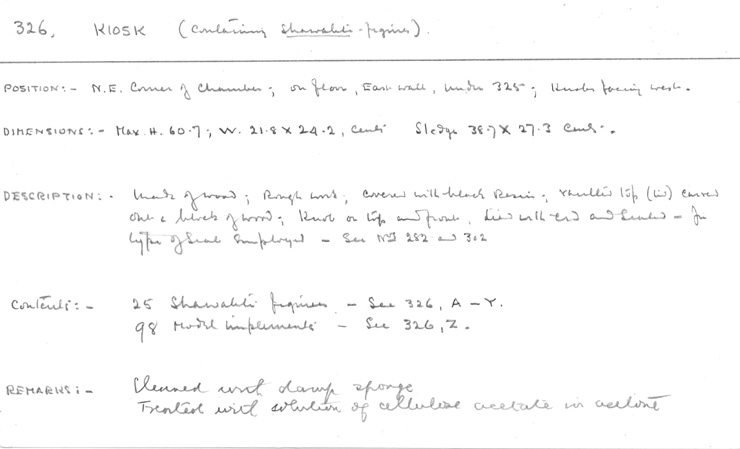 326. KIOSK (Containing Shawabti-figures).
POSITION:- N.E. Corner of Chamber; on floor, East wall, under 325; Knobs facing west.
DIMENSIONS:- Max. H. 60.7; W. 21.8 X 24.2, Cents Sledge 38.7 X 27.3 Cents.
DESCRIPTION:- Made of wood; Rough work; covered with black Resin; Vaulted top (lid) carved
out a block of wood; Knob on top and front, tied with cord and sealed - For
type of Seal Employed - See Nos 282 and 302
Contents:- 25 Shawabti figures - See 326, A-Y.
98 Model implements - See 326, Z.
REMARKS:- Cleaned with damp sponge
Treated with solution of cellulose acetate in acetone